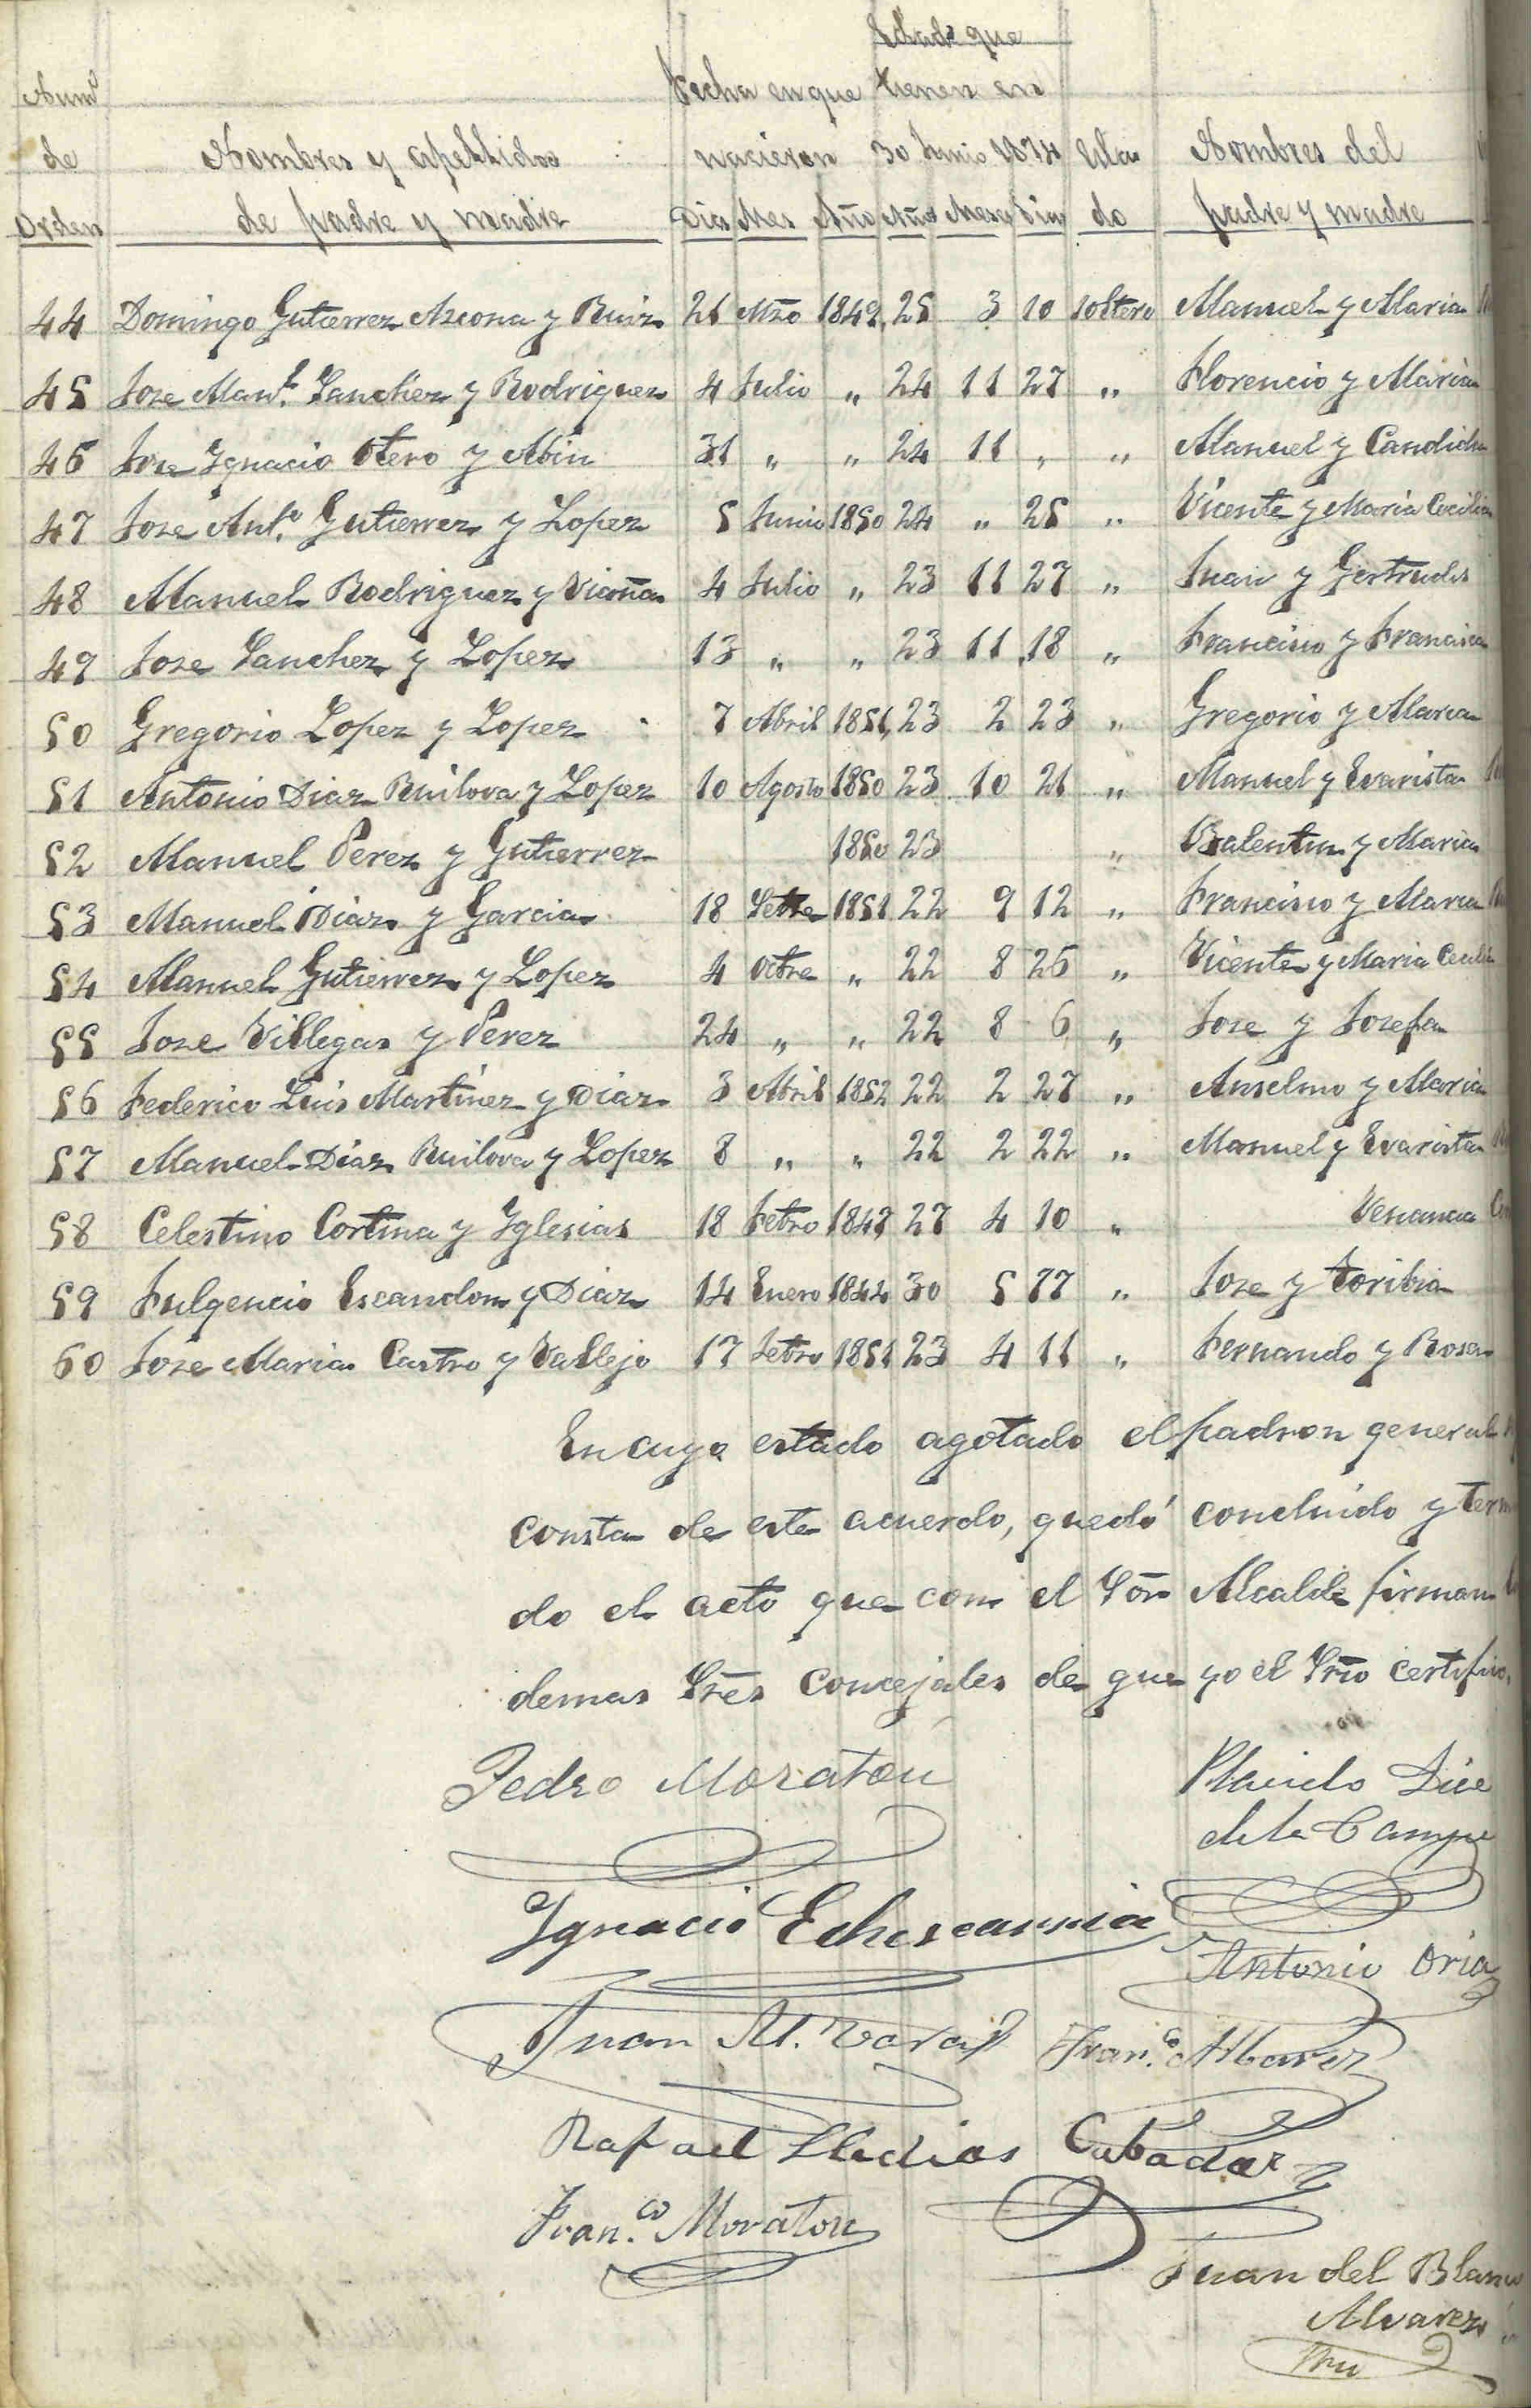 Edads que
Numº Fecha en que tienen en
de Nombres y apellidos nacieron 30 Junio 1874 Esta Nombres del
Orden de padre y madre Dia Mes Año Años Meses Dias do padre y madre
44 Domingo Gutierrez Azcona y Ruiz 21 Mzo 1849 25 3 10 soltero Manuel y Maria
45 Jose Manl. Sanchez y Rodriguez 4 Julio " 24 11 27 " Florencio y Maria
46 Jose Ygnacio Otero y Abin 31 " " 24 11 " " Manuel y Candida
47 Jose Anto. Gutierrez y Lopez 5 Junio 1850 24 " 25 " Vicente y Maria Cecilia
48 Manuel Rodriguez y Vicoña 4 Julio " 23 11 27 " Juan y Gertrudis
49 Jose Sanchez y Lopez 13 " " 23 11 18 " Francisco y Francisca
50 Gregorio Lopez y Lopez 7 Abril 1851 23 2 23 " Gregorio y Maria
51 Antonio Diaz Ruilova y Lopez 10 Agosto 1850 23 10 21 " Manuel y Evarista
52 Manuel Perez y Gutierrez 1850 23 " Balentin y Maria
53 Manuel Diaz y Garcia 18 Setre 1851 22 9 12 " Francisco y Maria
54 Manuel Gutierrez y Lopez 4 Octre " 22 8 26 " Vicente y Maria Cecilia
55 Jose Villegas y Perez 24 " " 22 8 6 " Jose y Josefa
56 Federico Luis Martinez y Diaz 3 Abril 1852 22 2 27 " Anselmo y Maria
57 Manuel Diaz Ruilova y Lopez 8 " " 22 2 22 " Manuel y Evarista
58 Celestino Cortina y Yglesias 18 Febro 1847 27 4 10 " Venancia
59 Fulgencio Escandon y Diaz 14 Enero 1844 30 5 77 " Jose y Toribia
60 Jose Maria Castro y Vallejo 17 Febro 1851 23 4 11 " Fernando y Rosa
En cuyo estado agotado el padron general
consta de este acuerdo, quedó concluido y term
do el acto que con el Sōr Alcalde firman
demas Srēs Concejales de que yo el Srīo certifico.
Pedro Moraton
Placido Dice
de la Campa
Ygnacio Echescarria
Antonio Oria
Juan M. Vara
Franco. Albarez
Rafael Lladias Cabadar
Franco. Moraton
Juan del Blanco
Alvarez
Srio